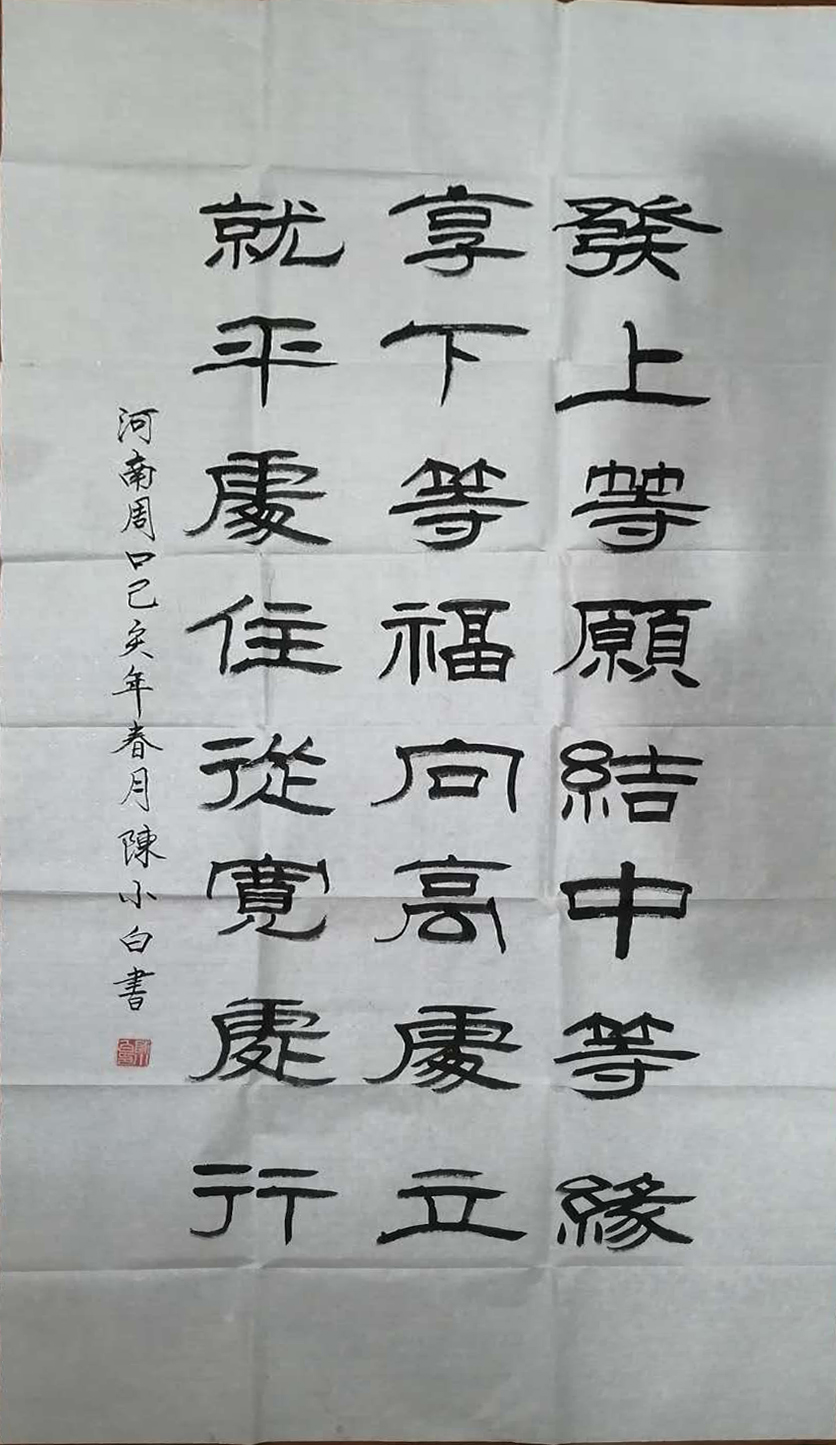 發上等願結中等緣
享下等福向高處立
就平處住從寬處行
河南周口己亥年春月陳小白書